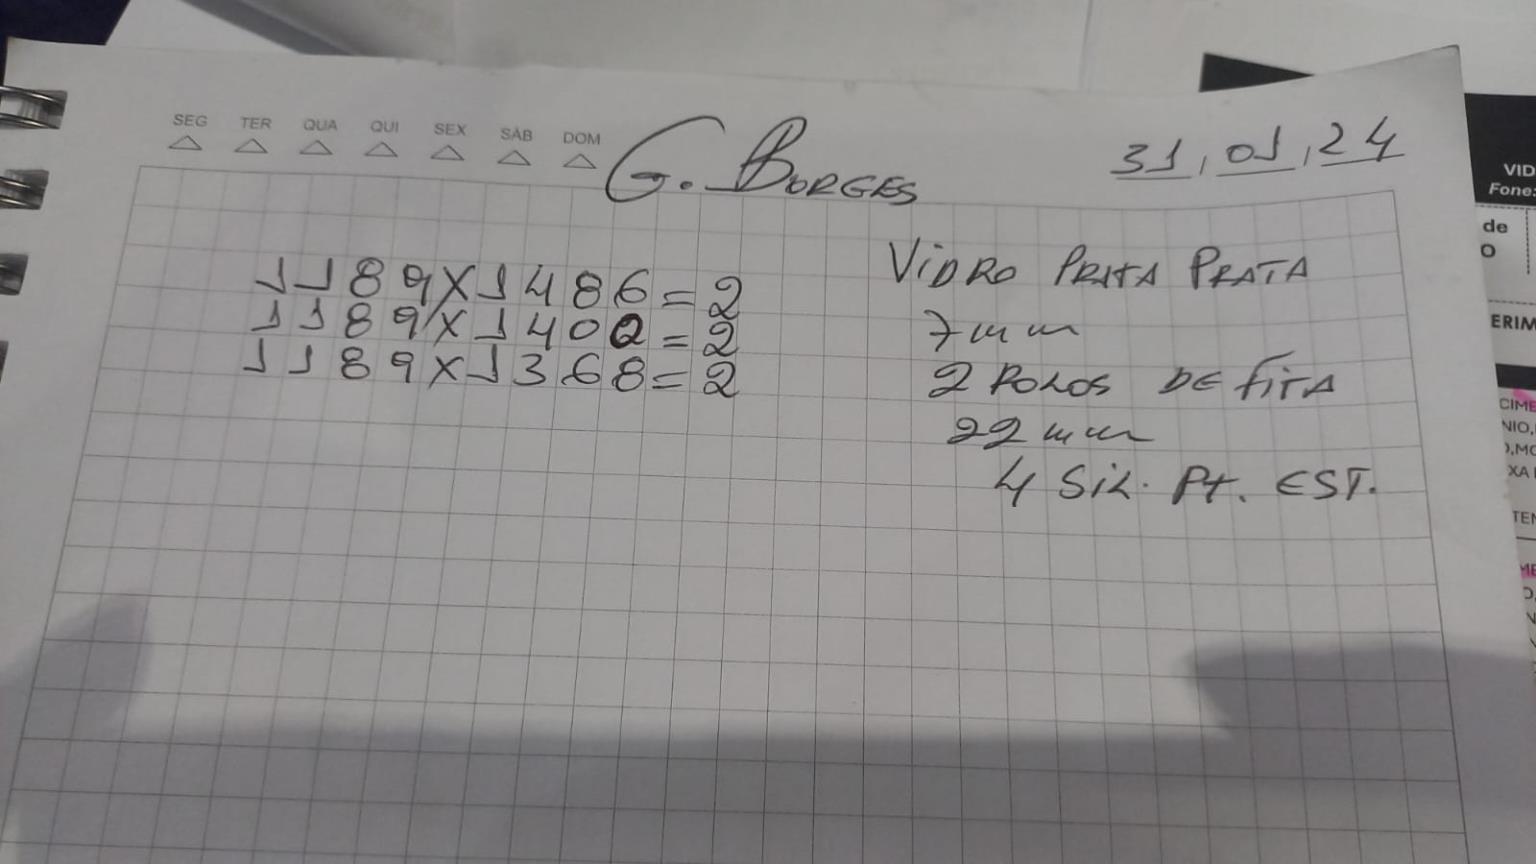 SEG TER QUA QUI SEX SÁB DOM
G. BORGES
31,01,24
1189X1486=2
1189X1400=2
1189X1368=2
VIDRO PRATA PRATA
7mm
2 ROLOS DE FITA
22mm
4 SIL. PT. EST.
VID
Fone:
de
O
ERIM
CIME
NIO,
XA
TEN
ME